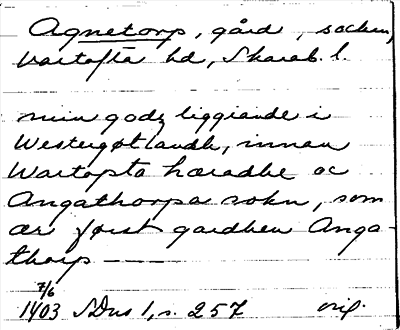 Agnetorp, gård, socken,
Vartofta hd, Skarab. l.
min godz liggiande i
Westergøtlandh, innan
Wartopta hæradhe oc
Angathorpa sokn, som
ær først gardhen Anga-
thorp ——
7/6
1403 SDns 1, s. 257 orig.